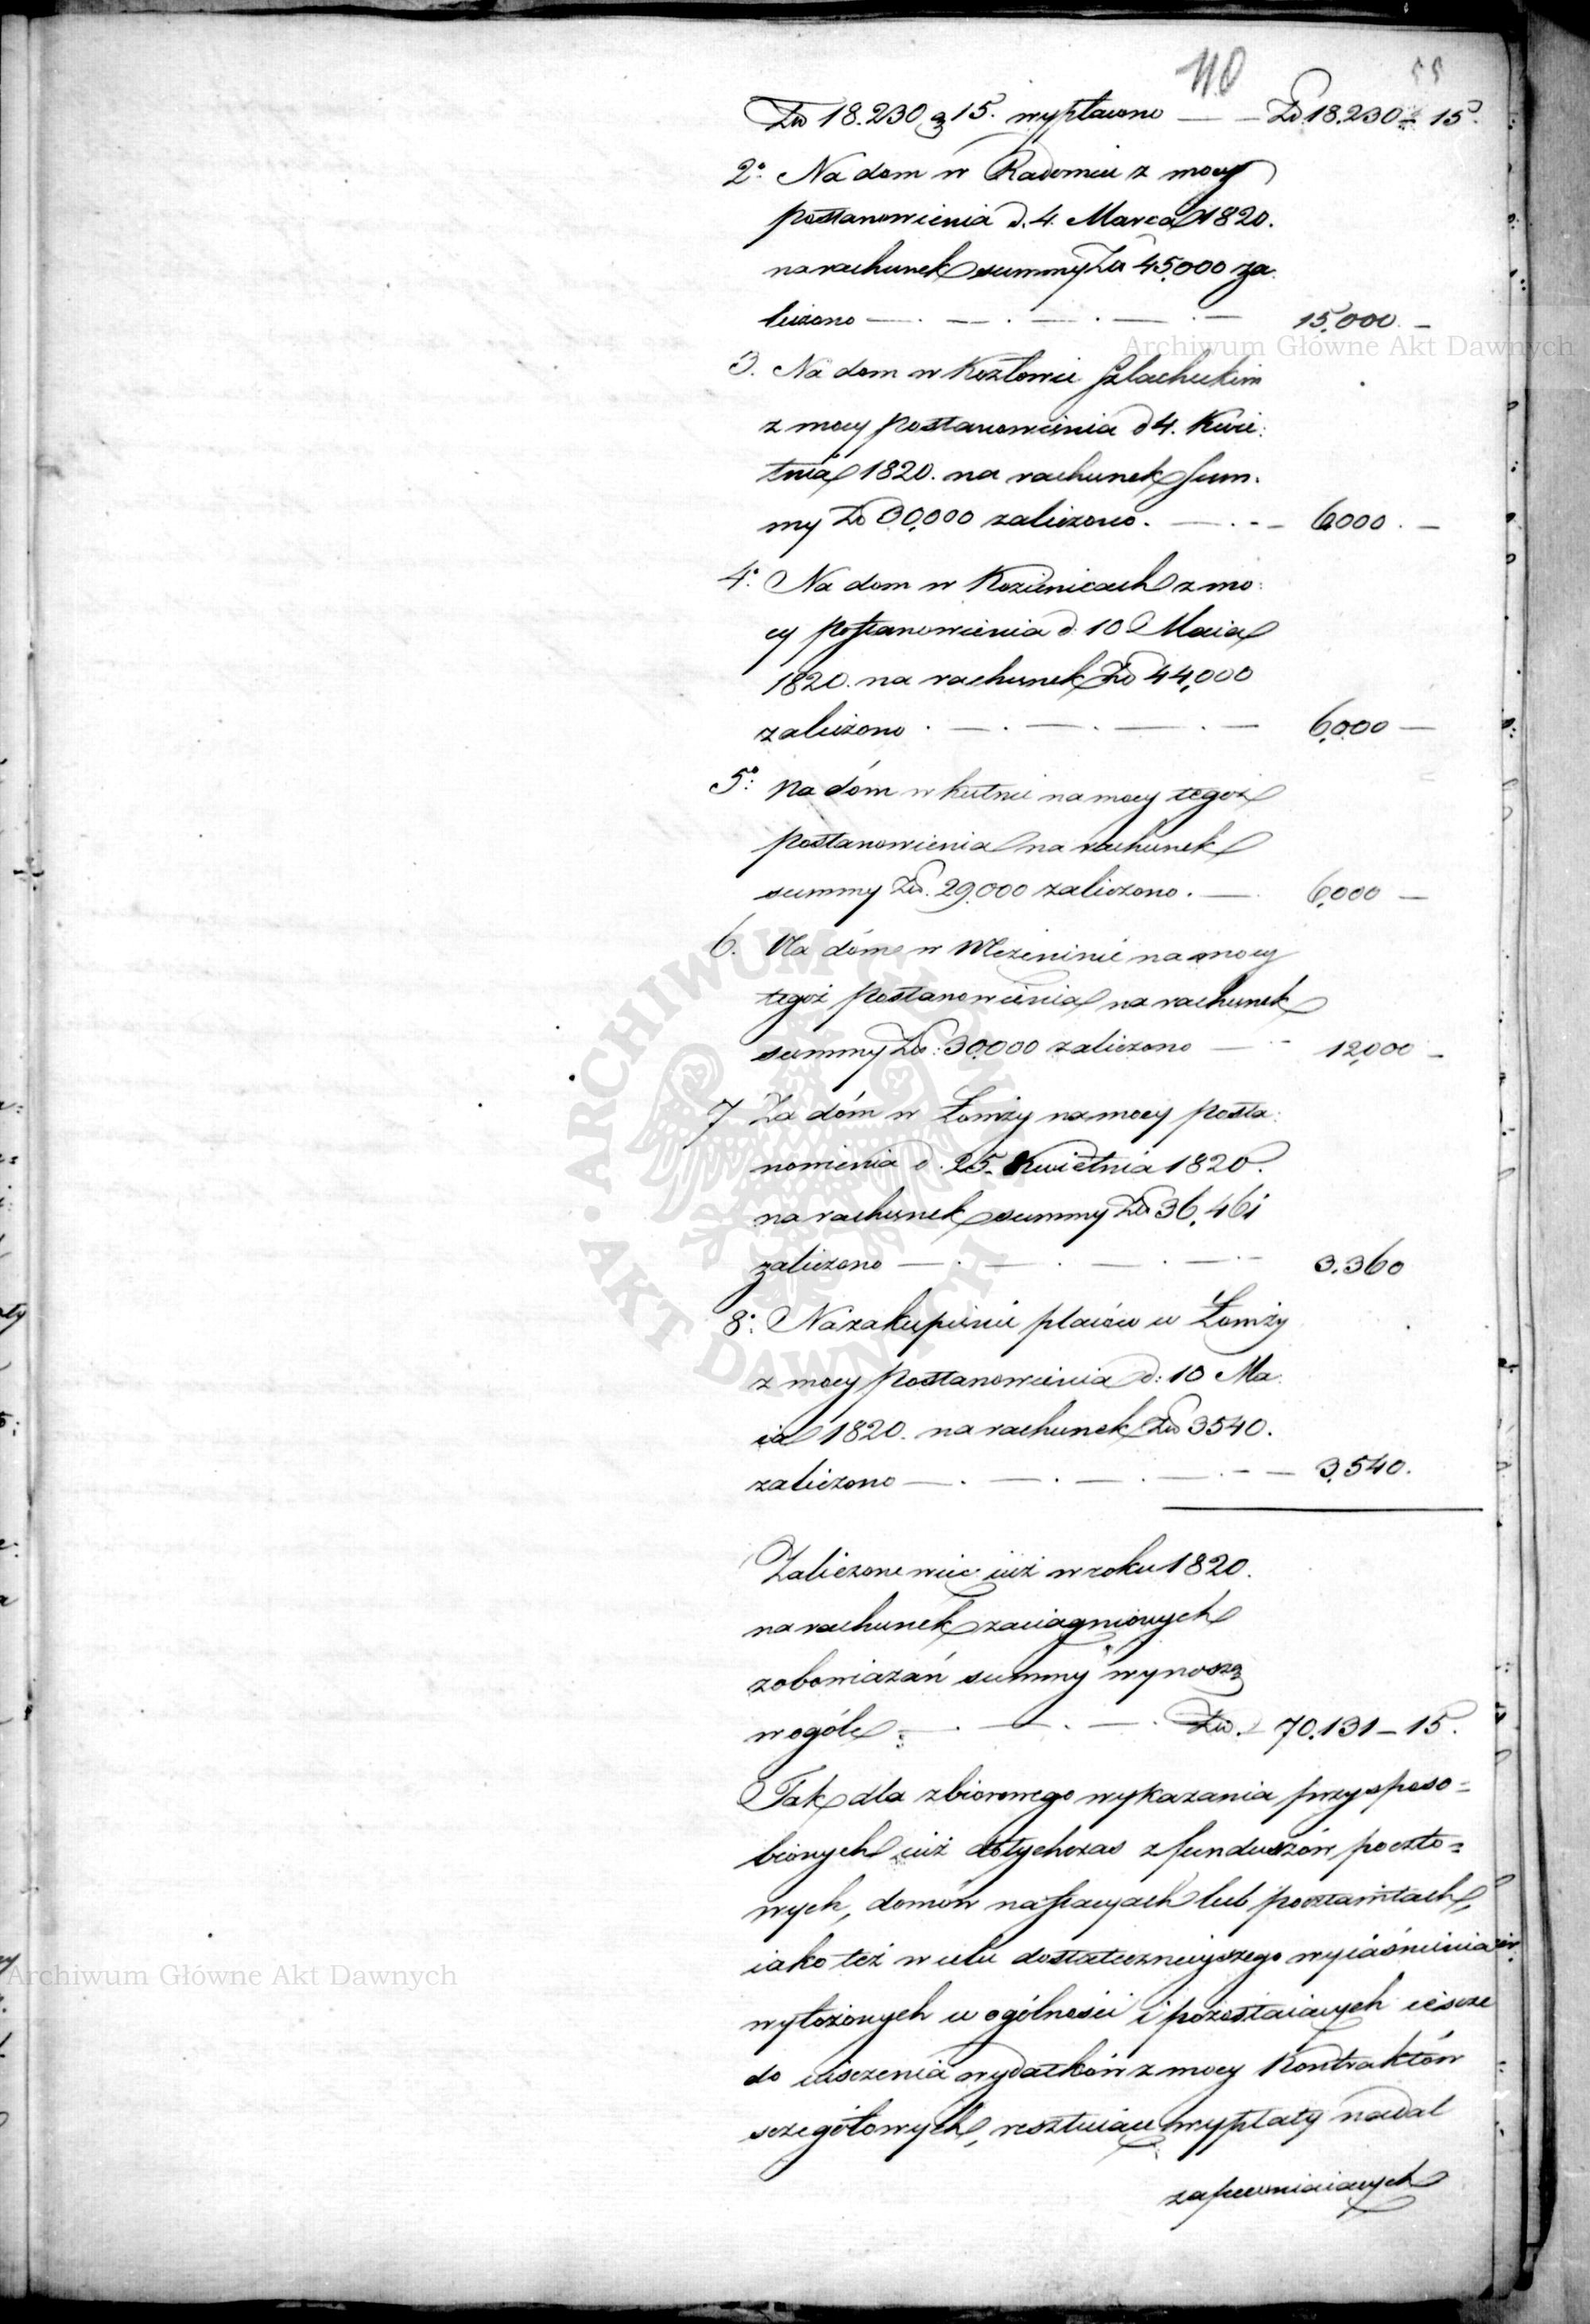 110 55
Zł 18.230 g 15. wypłacono — — Zł 18.230 — 15.
2° Na dom w Radomiu z mocy
postanowienia d. 4. Marca 1820.
na rachunek summy Zł 45,000 za:
liczono — . — . — . — . — 15,000. —
Archiwum Główne Akt Dawnych
3. Na dom w Kozłowie Szlacheckim
z mocy postanowienia d 4. Kwie:
tnia 1820. na rachunek Sum:
my Zł 30,000 zaliczono. — . - - 6000. —
4° Na dom w Kozienicach z mo:
cy postanowienia d. 10 Maia
1820. na rachunek Zł 44,000
zaliczono . — . — . — . — 6,000 —
5° Na dóm w Kutnie na mocy tegoż
postanowienia na rachunek
summy Zł. 29,000 zaliczono. — . 6,000 —
6. Na dóm w Mężeninie na mocy
tegoż postanowienia na rachunek
summy Zł: 30,000 zaliczono — - 12,000 —
7 Za dóm w Łomży na mocy posta:
nowienia d. 25. Kwietnia 1820.
na rachunek summy Zł 36,461
zaliczono — . — . — . — . - 3.360
8° Na zakupienie placów w Łomży
z mocy postanowienia d: 10 Ma:
ia 1820. na rachunek Zł 3540.
zaliczono — . — . — . — - — 3,540.
Zaliczone więc iuż w roku 1820.
na rachunek zaciągnionych
zobowiązań summy wynoszą
w ogóle . — . — . — . Zł. 70.131 — 15.
Tak dla zbiorowego wykazania przysposo=
bionych iuż dotychczas z funduszów poczto=
wych, domów na stacyach lub pocztamtach,
iako też w celu dostatecznieyszego wyiaśnienia
Archiwum Główne Akt Dawnych
wyłożonych w ogólności i pozostaiących ieszcze
do uiszczenia wydatków z mocy Kontraktów
szczegółowych, resztuiące wypłaty nadal
zapewniaiących
ARCHIWUM GŁÓWNE AKT DAWNYCH